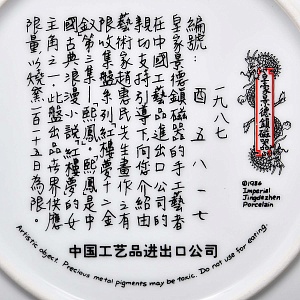 編號：
一九八七
酉 五八一七
皇家景德鎮磁器的手工藝者
在中國工藝品進出口公司的
親切支持引導下向您介紹由
藝術家趙惠民先生畫作之有
限收集盤系列紅樓夢十二金
釵第三集—「熙鳳」。熙鳳是中
國古典浪漫小說紅樓夢的女
主角之一，此盤出品在世界供應
限量以燒窯一百一十五日為限。
皇家景德鎮磁器
©1986
Imperial
Jingdezhen
Porcelain
中国工艺品进出口公司
Artistic object. Precious metal pigments may be toxic. Do not use for eating.